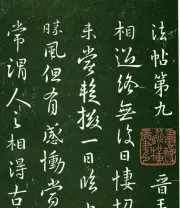 法帖第九 晉王
相過終無復日悽切
未嘗暫掇一日臨
勝風但有感慟當
常謂人之相得古